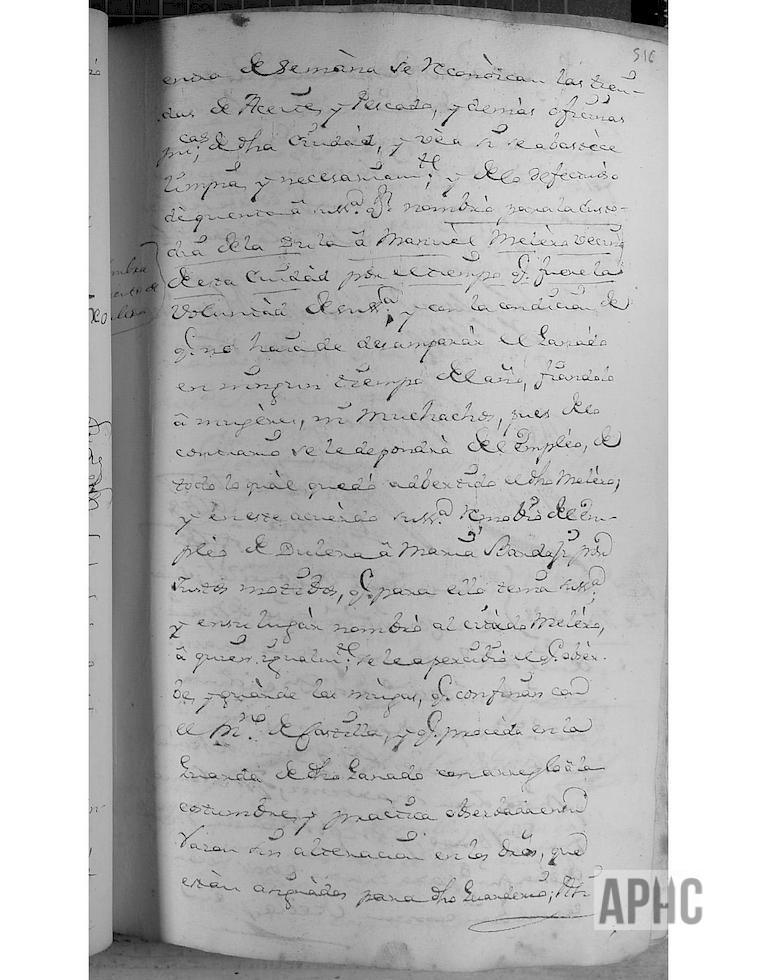 516
entra de semàna se reconòzcan las tien-
das de Aceite, y Pescado, y demàs oficinas
pu.cas de dha Ciudàd, y vèa si se abastèce
limpia, y necesariam.te; y de lo defectuoso
dè quenta à suss.a q.n nombrò para la custo-
dia de la Dula à Manuèl Melèro vecino
de esta Ciudàd por el tiempo q.e fuere la
Voluntàd de suss.a, y con la condicion de
q.e no haia de desamparàr el Ganàdo
en ningun tiempo del año, fiandolo
à mugères, ni Muchachos, pues de lo
contrario se le depondrà del Emplèo, de
todo lo quàl quedò adbertido el dho Melèro;
y en este acuèrdo suss.a removiò del Em-
plèo de Dulero à Maria Bardaji por
Justos motibos, q.e para ello tenia suss.a;
y en su lugàr nombrò al citàdo Melèro,
à quien igualm.te se le apercibiò el q.e obsèr-
be, y guàrde las mugas, q.e confinan con
el R.no de Castilla, y q.e procèda en la
Guarda de dho Ganado con arreglo à la
costumbre, y pràctica obserbada en
sin alteracion en los dias, que
estàn asignàdos para dho
APHC